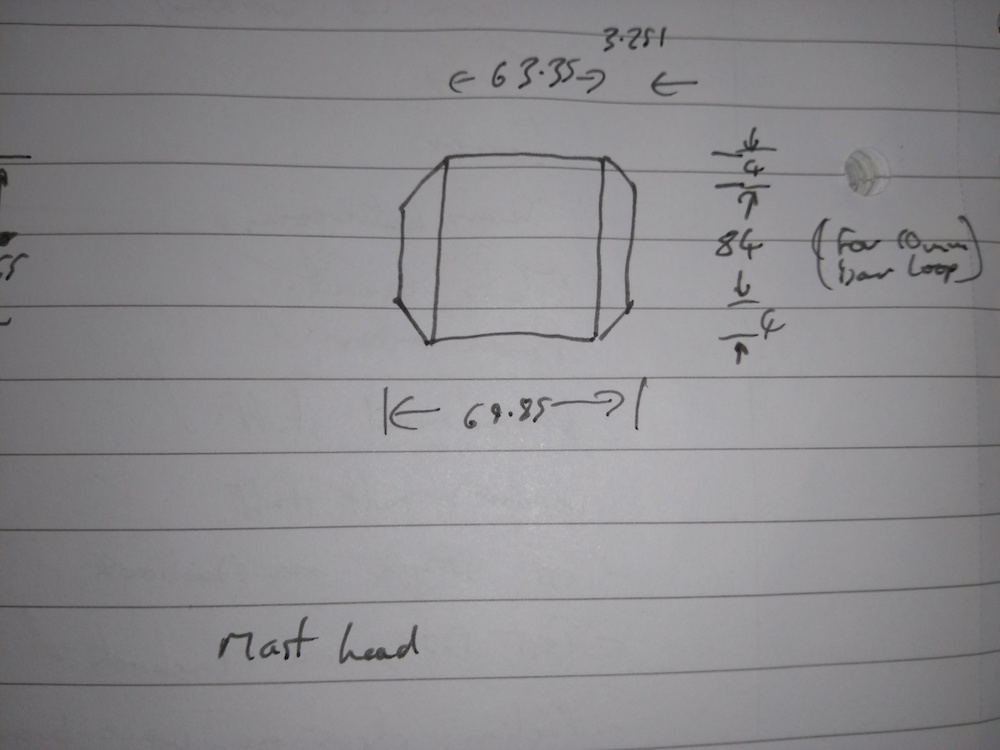 3.251
63.35
4
84
(For 10mm
bar loop)
4
69.85
Mast head